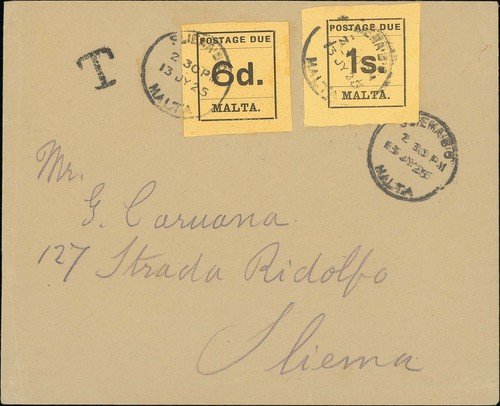 T
SLIEMA B.O.
2 30 PM
13 JY 25
MALTA
POSTAGE DUE
6d.
MALTA.
POSTAGE DUE
1s.
MALTA.
SLIEMA B.O.
2 30 PM
13 JY 25
MALTA
Mr.
G. Caruana.
127 Strada Ridolfo
Sliema